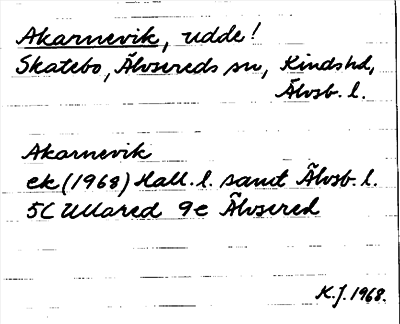 Akarnevik, udde!
Skatebo, Älvsereds sn, Kindshd,
Älvsb. l.
Akarnevik
ek (1968) Hall. l. samt Älvsb. l.
5C Ullared 9e Älvsered
K.J. 1968.